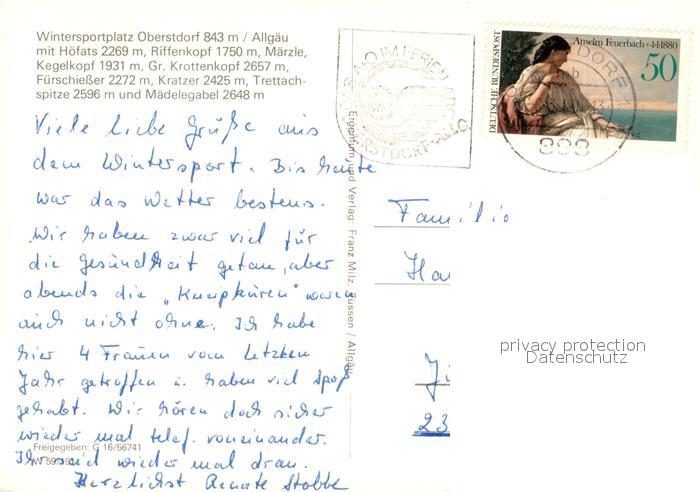 Wintersportplatz Oberstdorf 843 m / Allgäu
mit Höfats 2269 m, Riffenkopf 1750 m, Märzle,
Kegelkopf 1931 m, Gr. Krottenkopf 2657 m,
Fürschießer 2272 m, Kratzer 2425 m, Trettach-
spitze 2596 m und Mädelegabel 2648 m
Viele liebe Grüße aus
dem Wintersport. Bis heute
war das Wetter bestens.
Wir haben zwar viel für
die Gesundheit getan, aber
abends die „Kneipkuren" waren
auch nicht ohne. Ich habe
hier 4 Frauen vom letzten
Jahr getroffen u. haben viel Spaß
gehabt. Wir hören doch sicher
wieder mal telef. voneinander.
Ihr seid wieder mal dran.
Herzlichst Renate Stobbe
Freigegeben: G 16/56741
Eigentum und Verlag: Franz Milz, Füssen / Allgäu
IM FERIEN
OBERSTDORF-ALLG.
Anselm Feuerbach +4·1·1880
50
DEUTSCHE BUNDESPOST
DORF 1
b
Familie
Ha
23
privacy protection
Datenschutz